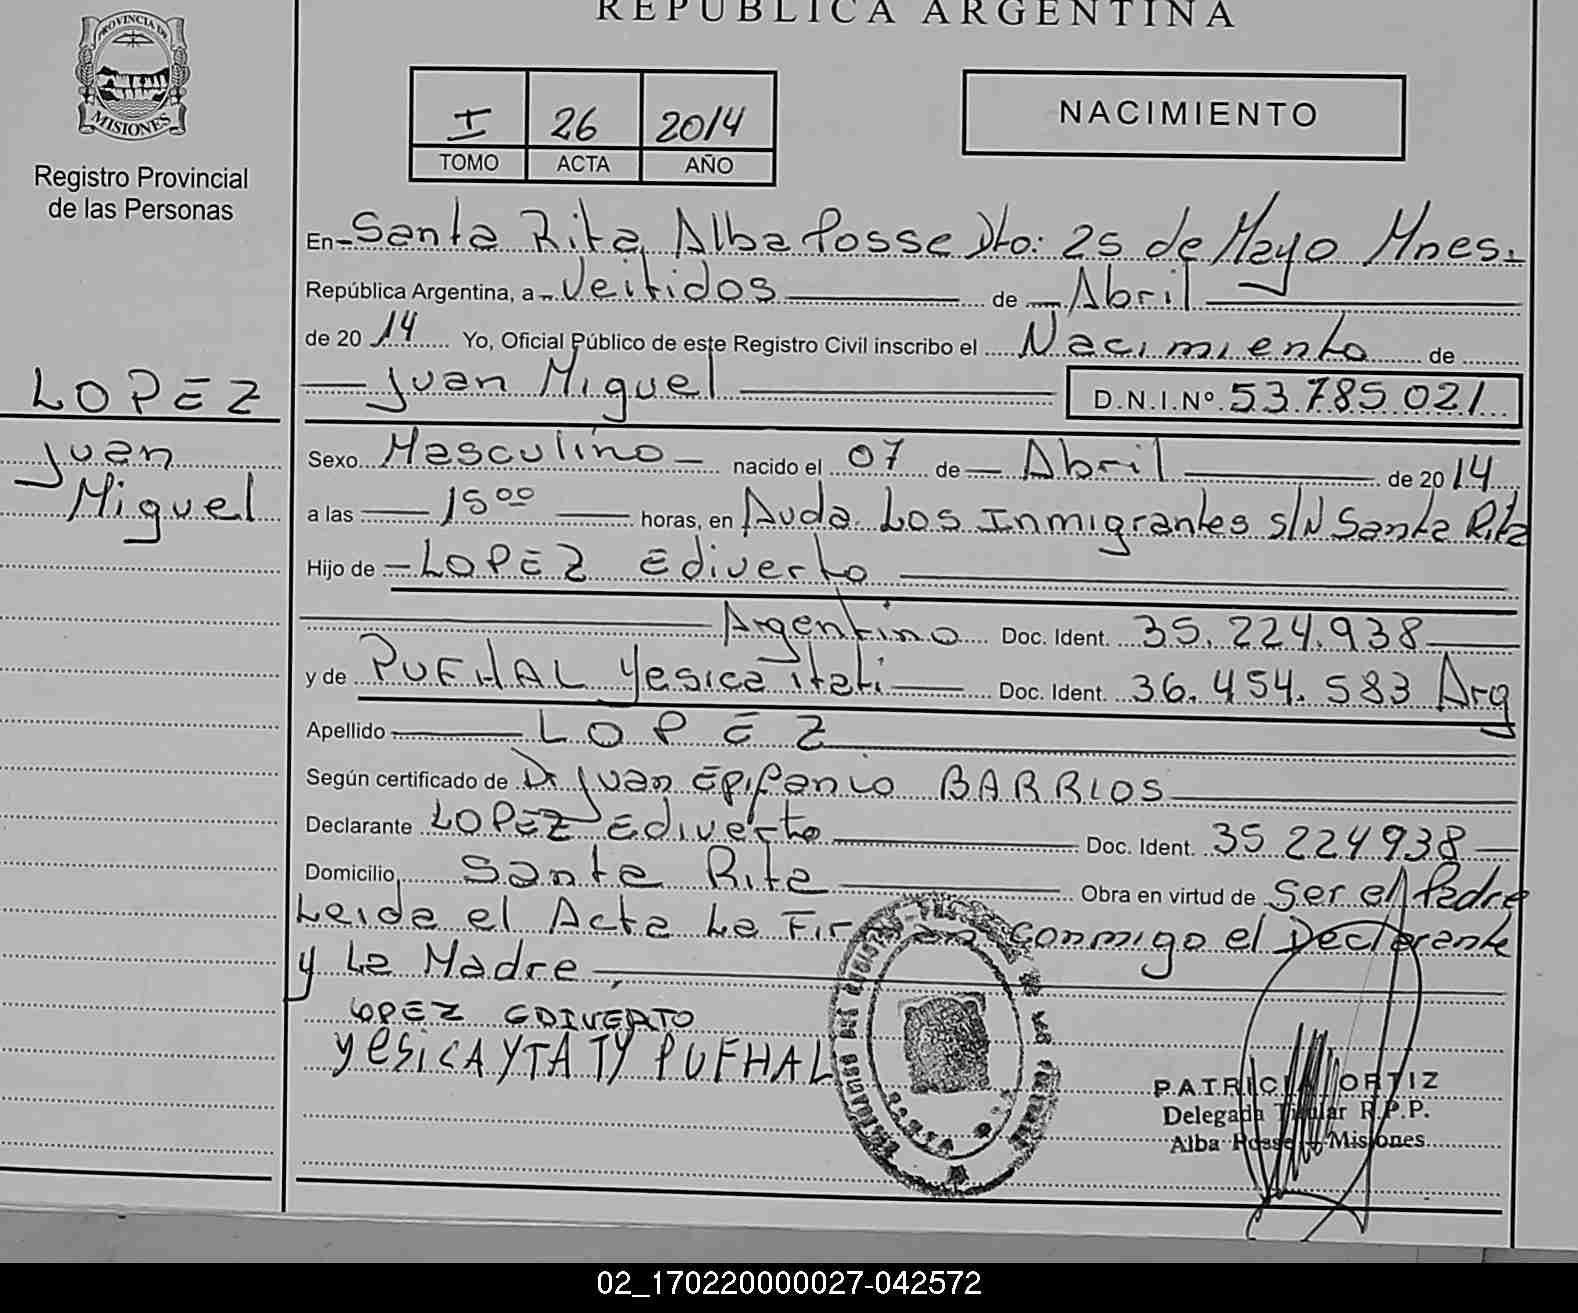 REPUBLICA ARGENTINA
PROVINCIA DE
MISIONES
Registro Provincial
de las Personas
I 26 2014
TOMO ACTA AÑO
NACIMIENTO
En Santa Rita Alba Posse Dto: 25 de Mayo Mnes.
República Argentina, a Veitidos de Abril
de 2014 Yo, Oficial Público de este Registro Civil inscribo el Nacimiento de
Juan Miguel D.N.I.Nº 53.785.021
LOPEZ
Juan
Miguel
Sexo Masculino nacido el 07 de Abril de 2014
a las 15⁰⁰ horas, en Avda. Los Inmigrantes s/N Santa Rita
Hijo de LOPEZ Ediverto
Argentino Doc. Ident. 35.224.938
y de PUFHAL Yesica Itati Doc. Ident. 36.454.583 Arg
Apellido LOPEZ
Según certificado de Dr Juan Epifanio BARRIOS
Declarante LOPEZ Ediverto Doc. Ident. 35224938
Domicilio Santa Rita Obra en virtud de Ser el Padre
Leida el Acta La Firman conmigo el Declarante
y La Madre
LOPEZ EDIVERTO
YESiCA YTATY PUFHAL
PATRICIA ORTIZ
Delegada Titular R.P.P.
Alba Posse - Misiones
02_170220000027-042572